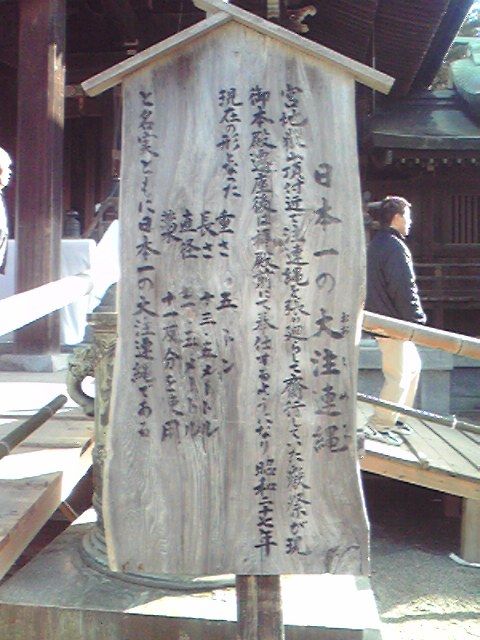 日本一の大注連縄
おおしめなわ
宮地嶽山頂付近で注連縄を張り廻らして斎行していた厳祭が現
御本殿遷座後は拝殿前にて奉仕するようになり昭和二十七年
現在の形となった
重さ 五トン
長さ 十三・五メートル
直径 二・五メートル
藁 十一反分を使用
と名実ともに日本一の大注連縄である